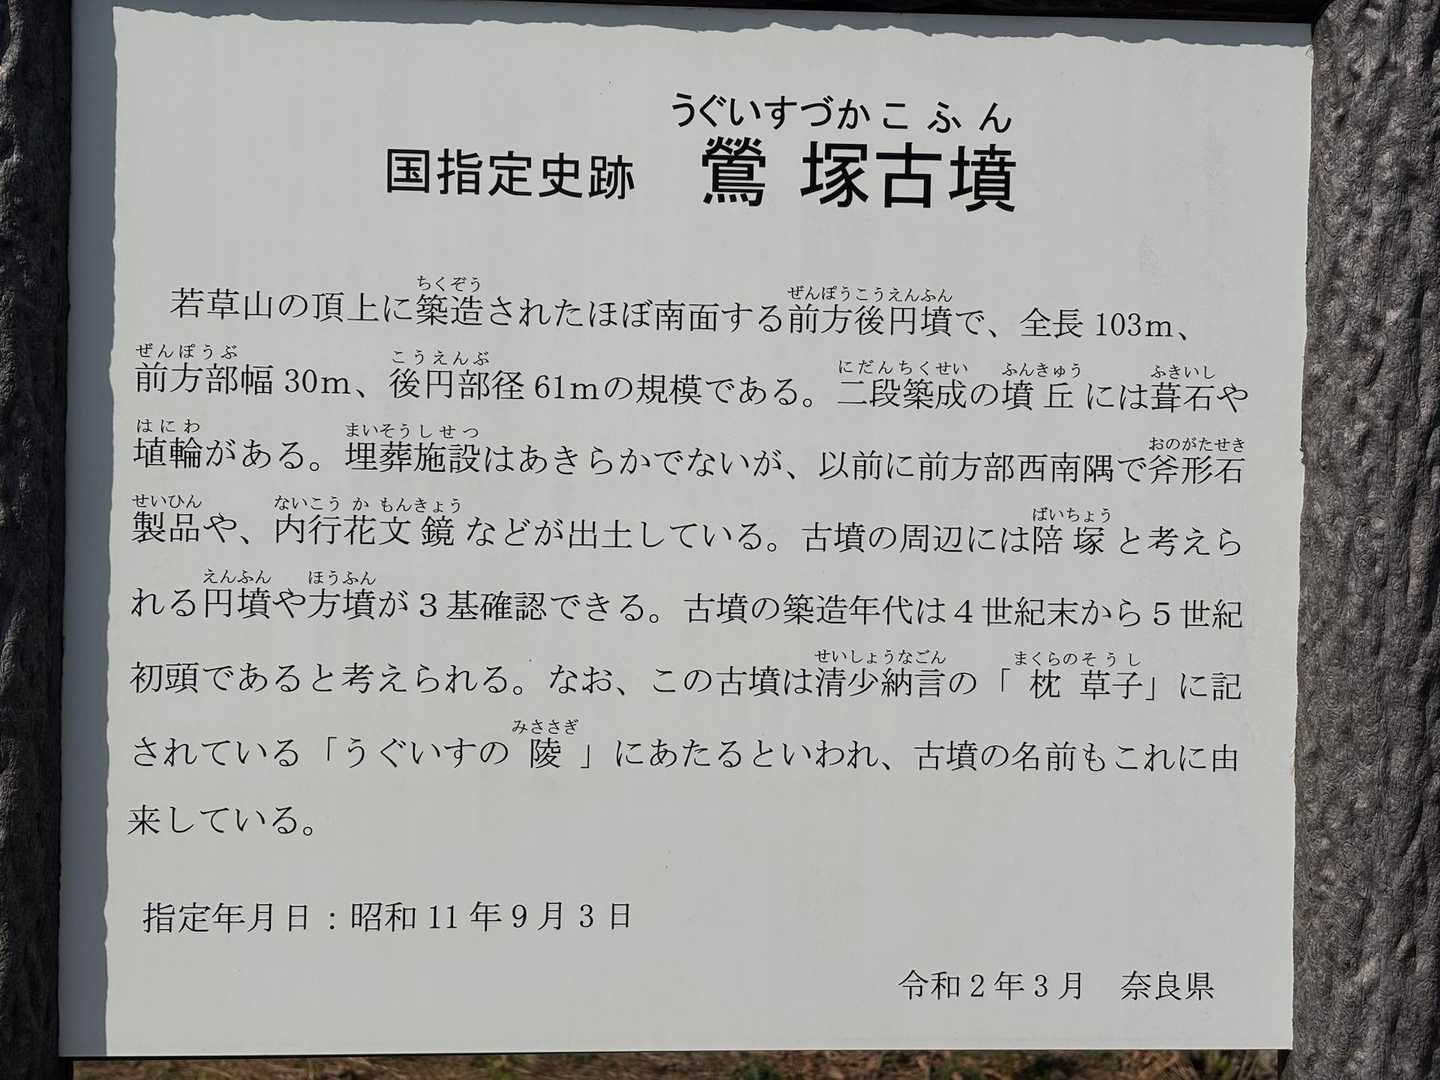 うぐいすづかこふん
国指定史跡　鶯塚古墳
ちくぞう　ぜんぽうこうえんふん
若草山の頂上に築造されたほぼ南面する前方後円墳で、全長103m、
ぜんぽうぶ　こうえんぶ　にだんちくせい　ふんきゅう　ふきいし
前方部幅30m、後円部径61mの規模である。二段築成の墳丘には葺石や
はにわ　まいそうしせつ　おのがたせき
埴輪がある。埋葬施設はあきらかでないが、以前に前方部西南隅で斧形石
せいひん　ないこうかもんきょう　ばいちょう
製品や、内行花文鏡などが出土している。古墳の周辺には陪塚と考えら
えんふん　ほうふん
れる円墳や方墳が３基確認できる。古墳の築造年代は４世紀末から５世紀
せいしょうなごん　まくらのそうし
初頭であると考えられる。なお、この古墳は清少納言の「枕草子」に記
みささぎ
されている「うぐいすの陵」にあたるといわれ、古墳の名前もこれに由
来している。
指定年月日：昭和11年9月3日
令和2年3月　奈良県